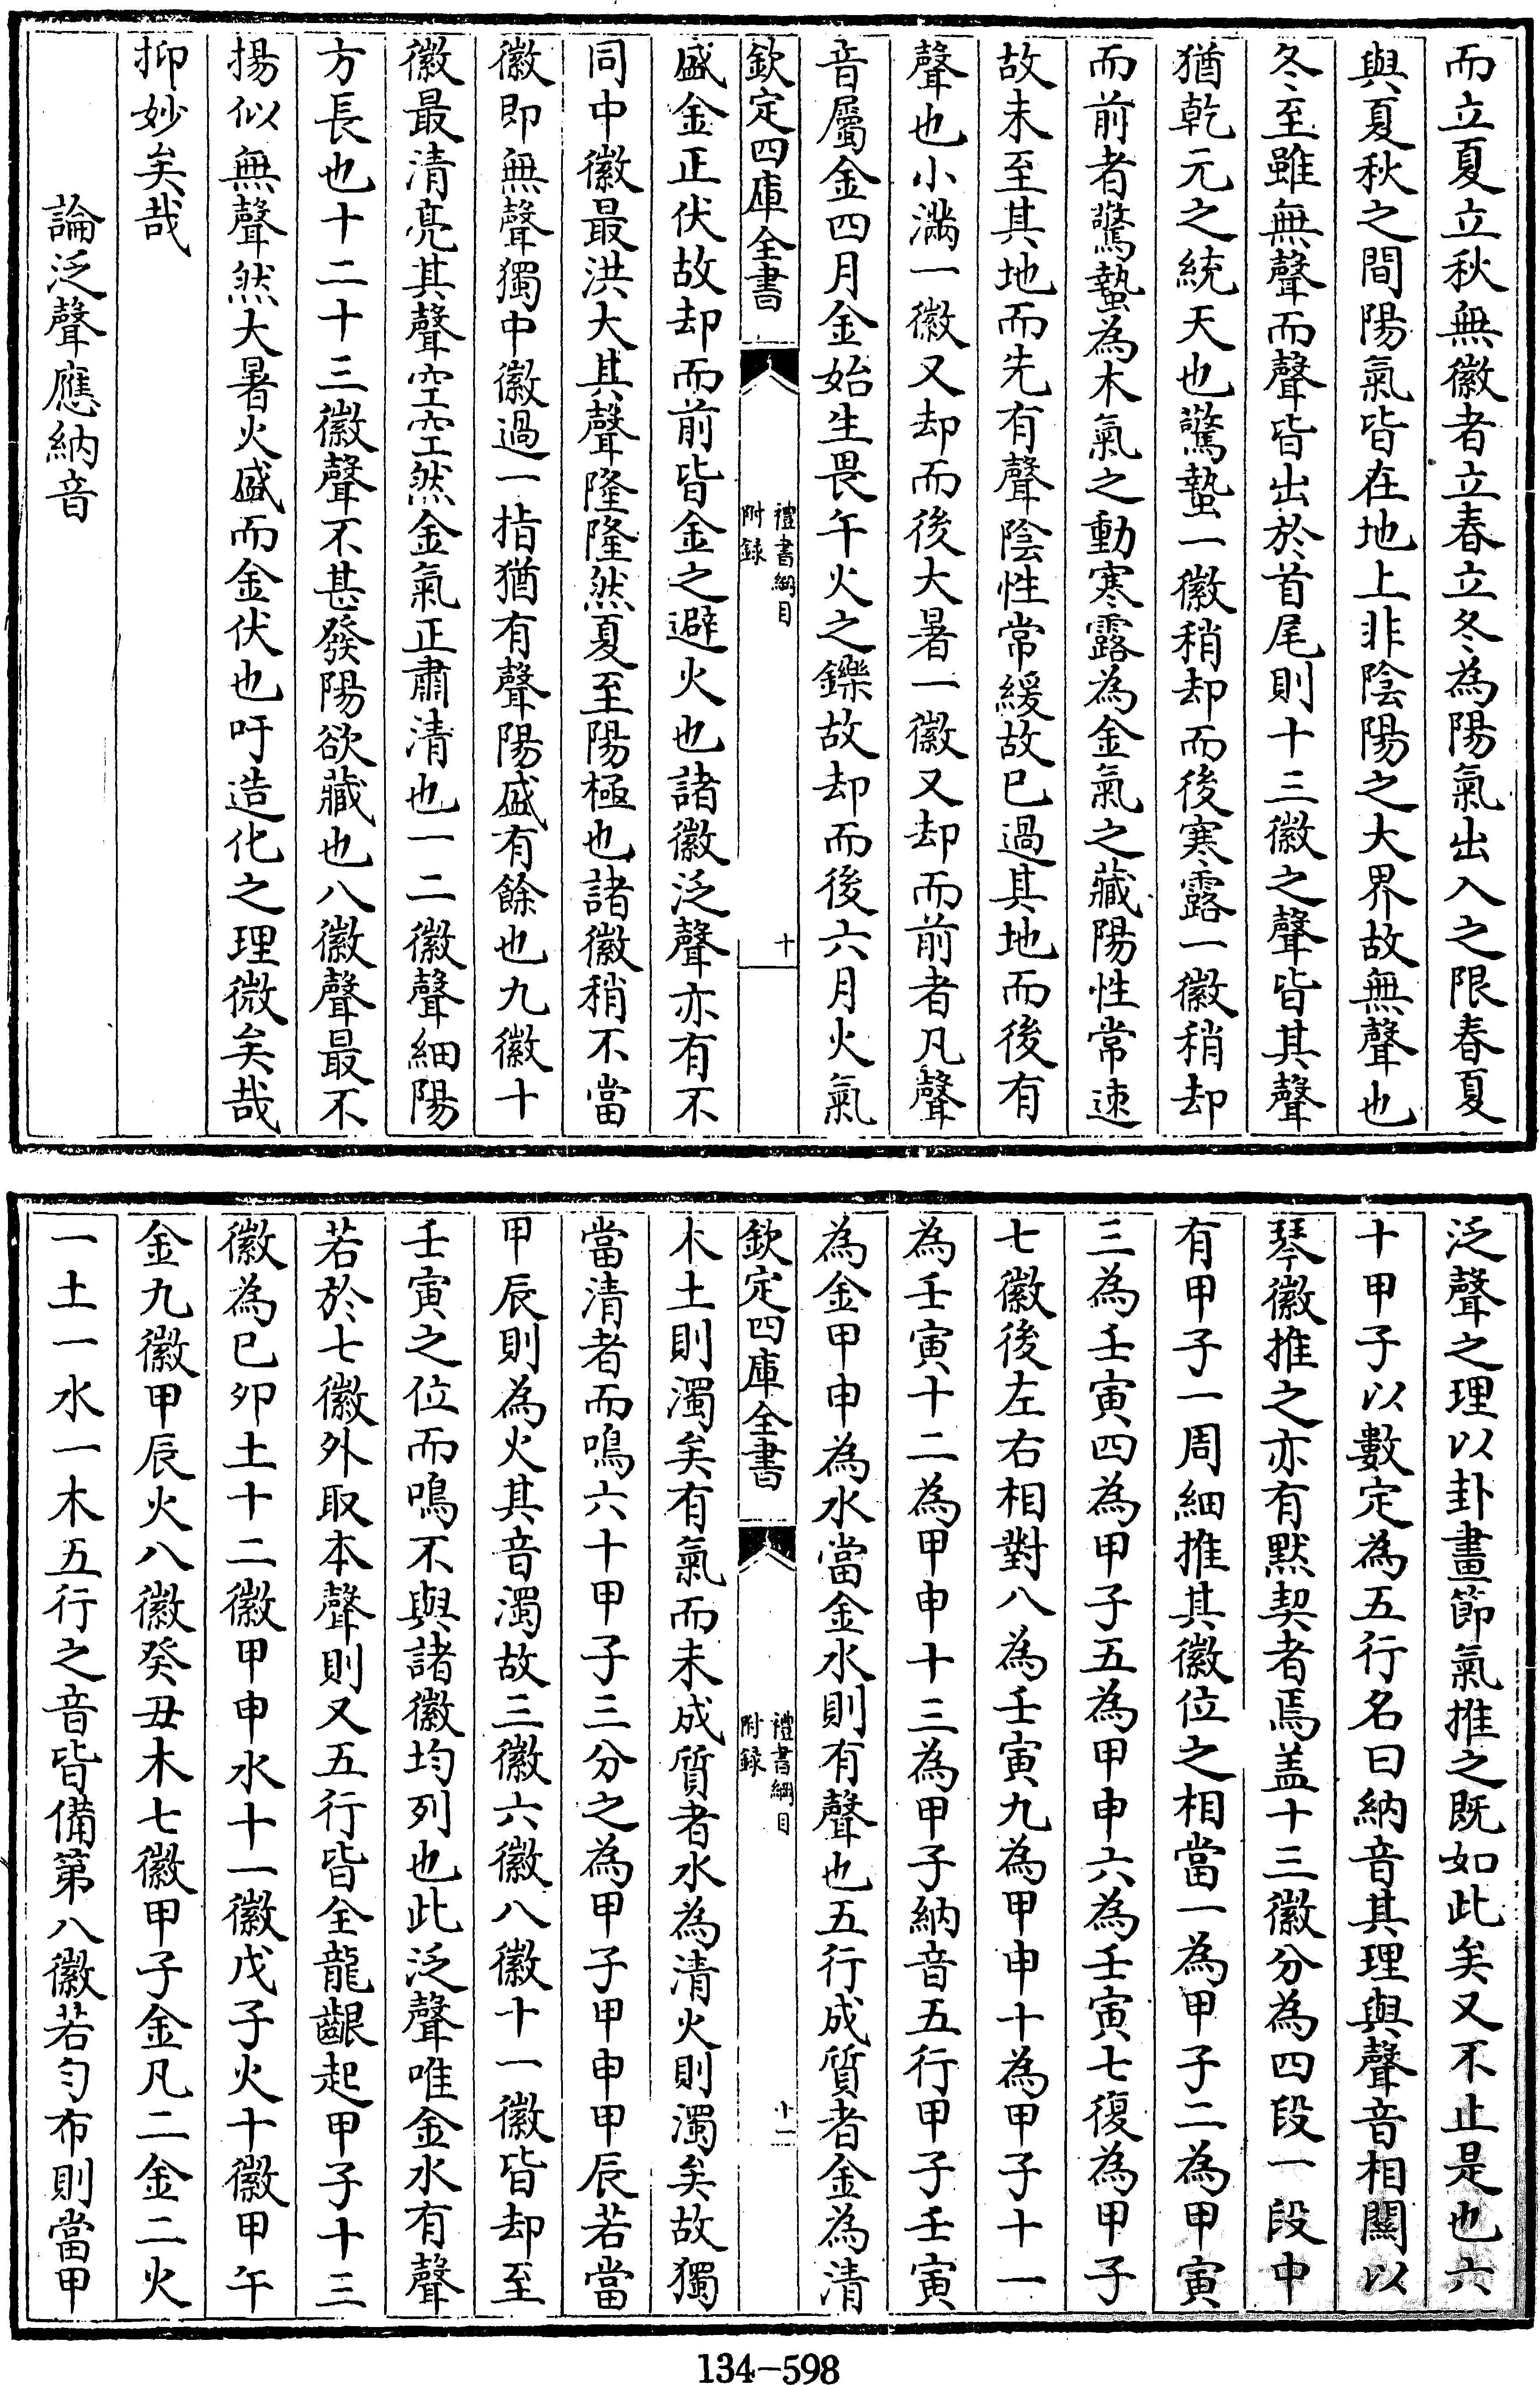 而立夏立秋無徽者立春立冬為陽氣出入之限春夏
與夏秋之間陽氣皆在地上非陰陽之大界故無聲也
冬至雖無聲而聲皆出於首尾則十三徽之聲皆其聲
猶乾元之統天也驚蟄一徽稍却而後寒露一徽稍却
而前者驚蟄為木氣之動寒露為金氣之藏陽性常速
故未至其地而先有聲陰性常緩故已過其地而後有
聲也小滿一徽又却而後大暑一徽又却而前者凡聲
音屬金四月金始生畏午火之鑠故却而後六月火氣
欽定四庫全書
禮書綱目
附錄
十
盛金正伏故却而前皆金之避火也諸徽泛聲亦有不
同中徽最洪大其聲隆隆然夏至陽極也諸徽稍不當
徽即無聲獨中徽過一指猶有聲陽盛有餘也九徽十
徽最清亮其聲空空然金氣正肅清也一二徽聲細陽
方長也十二十三徽聲不甚發陽欲藏也八徽聲最不
揚似無聲然大暑火盛而金伏也吁造化之理微矣哉
抑妙矣哉
論泛聲應納音
泛聲之理以卦畫節氣推之既如此矣又不止是也六
十甲子以數定為五行名曰納音其理與聲音相關以
琴徽推之亦有默契者焉盖十三徽分為四段一段中
有甲子一周細推其徽位之相當一為甲子二為甲寅
三為壬寅四為甲子五為甲申六為壬寅七復為甲子
七徽後左右相對八為壬寅九為甲申十為甲子十一
為壬寅十二為甲申十三為甲子納音五行甲子壬寅
為金甲申為水當金水則有聲也五行成質者金為清
欽定四庫全書
禮書綱目
附錄
十二
木土則濁矣有氣而未成質者水為清火則濁矣故獨
當清者而鳴六十甲子三分之為甲子甲申甲辰若當
甲辰則為火其音濁故三徽六徽八徽十一徽皆却至
壬寅之位而鳴不與諸徽均列也此泛聲唯金水有聲
若於七徽外取本聲則又五行皆全龍齦起甲子十三
徽為己卯土十二徽甲申水十一徽戊子火十徽甲午
金九徽甲辰火八徽癸丑木七徽甲子金凡二金二火
一土一水一木五行之音皆備第八徽若勻布則當甲
134-598